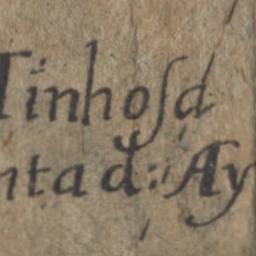 Tinhoſa
ntad: Ay